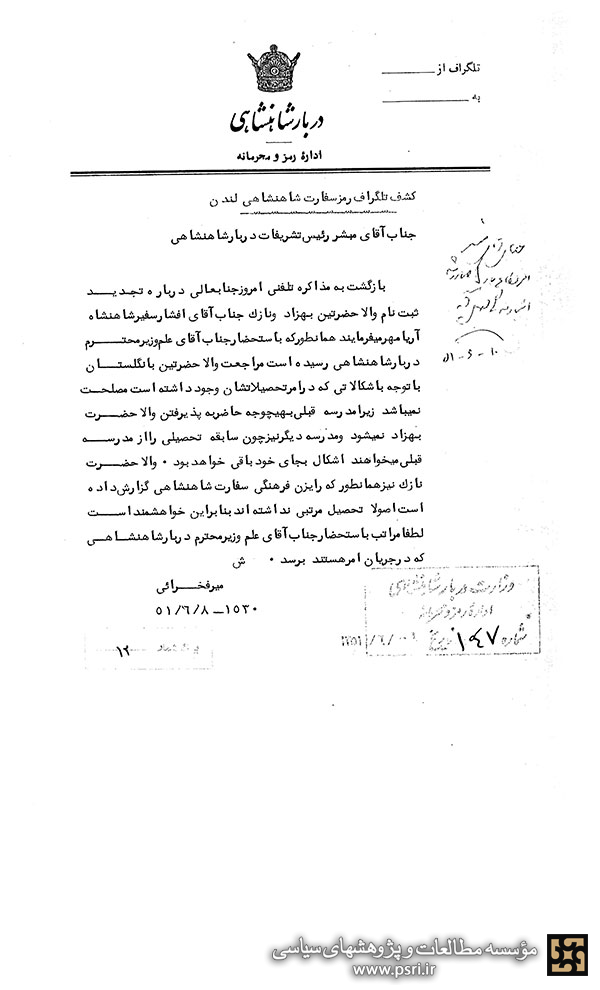 تلگراف از
به
دربار شاهنشاهی
ادارهٔ رمز و محرمانه
کشف تلگراف رمز سفارت شاهنشاهی لندن
جناب آقای مبشر رئیس تشریفات دربار شاهنشاهی
بازگشت به مذاکره تلفنی امروز جنابعالی درباره تجدید
ثبت نام والاحضرتین بهزاد ونازک جناب آقای افشار سفیر شاهنشاه
آریا مهر میفرمایند همانطور که باستحضار جناب آقای علم وزیر محترم
دربار شاهنشاهی رسیده است مراجعت والاحضرتین بانگلستان
با توجه باشکالاتی که در امر تحصیلاتشان وجود داشته است مصلحت
نمیباشد زیرا مدرسه قبلی بهیچوجه حاضر به پذیرفتن والاحضرت
بهزاد نمیشود ومدرسه دیگر نیز چون سابقه تحصیلی را از مدرسه
قبلی میخواهند اشکال بجای خود باقی خواهد بود ۰ والاحضرت
نازک نیز همانطور که رایزن فرهنگی سفارت شاهنشاهی گزارش داده
است اصولا تحصیل مرتبی نداشته اند بنابراین خواهشمند است
لطفا مراتب باستحضار جناب آقای علم وزیر محترم دربار شاهنشاهی
که در جریان امر هستند برسد ۰ ش
میرفخرائی
۱۵۳۰–۵۱/۶/۸
جناب آقای
۵۱-۶-۱۰
وزارت دربار شاهنشاهی
اداره رمز و محرمانه
شماره ۱۴۷
۱۲
مؤسسه مطالعات و پژوهشهای سیاسی
www.psri.ir